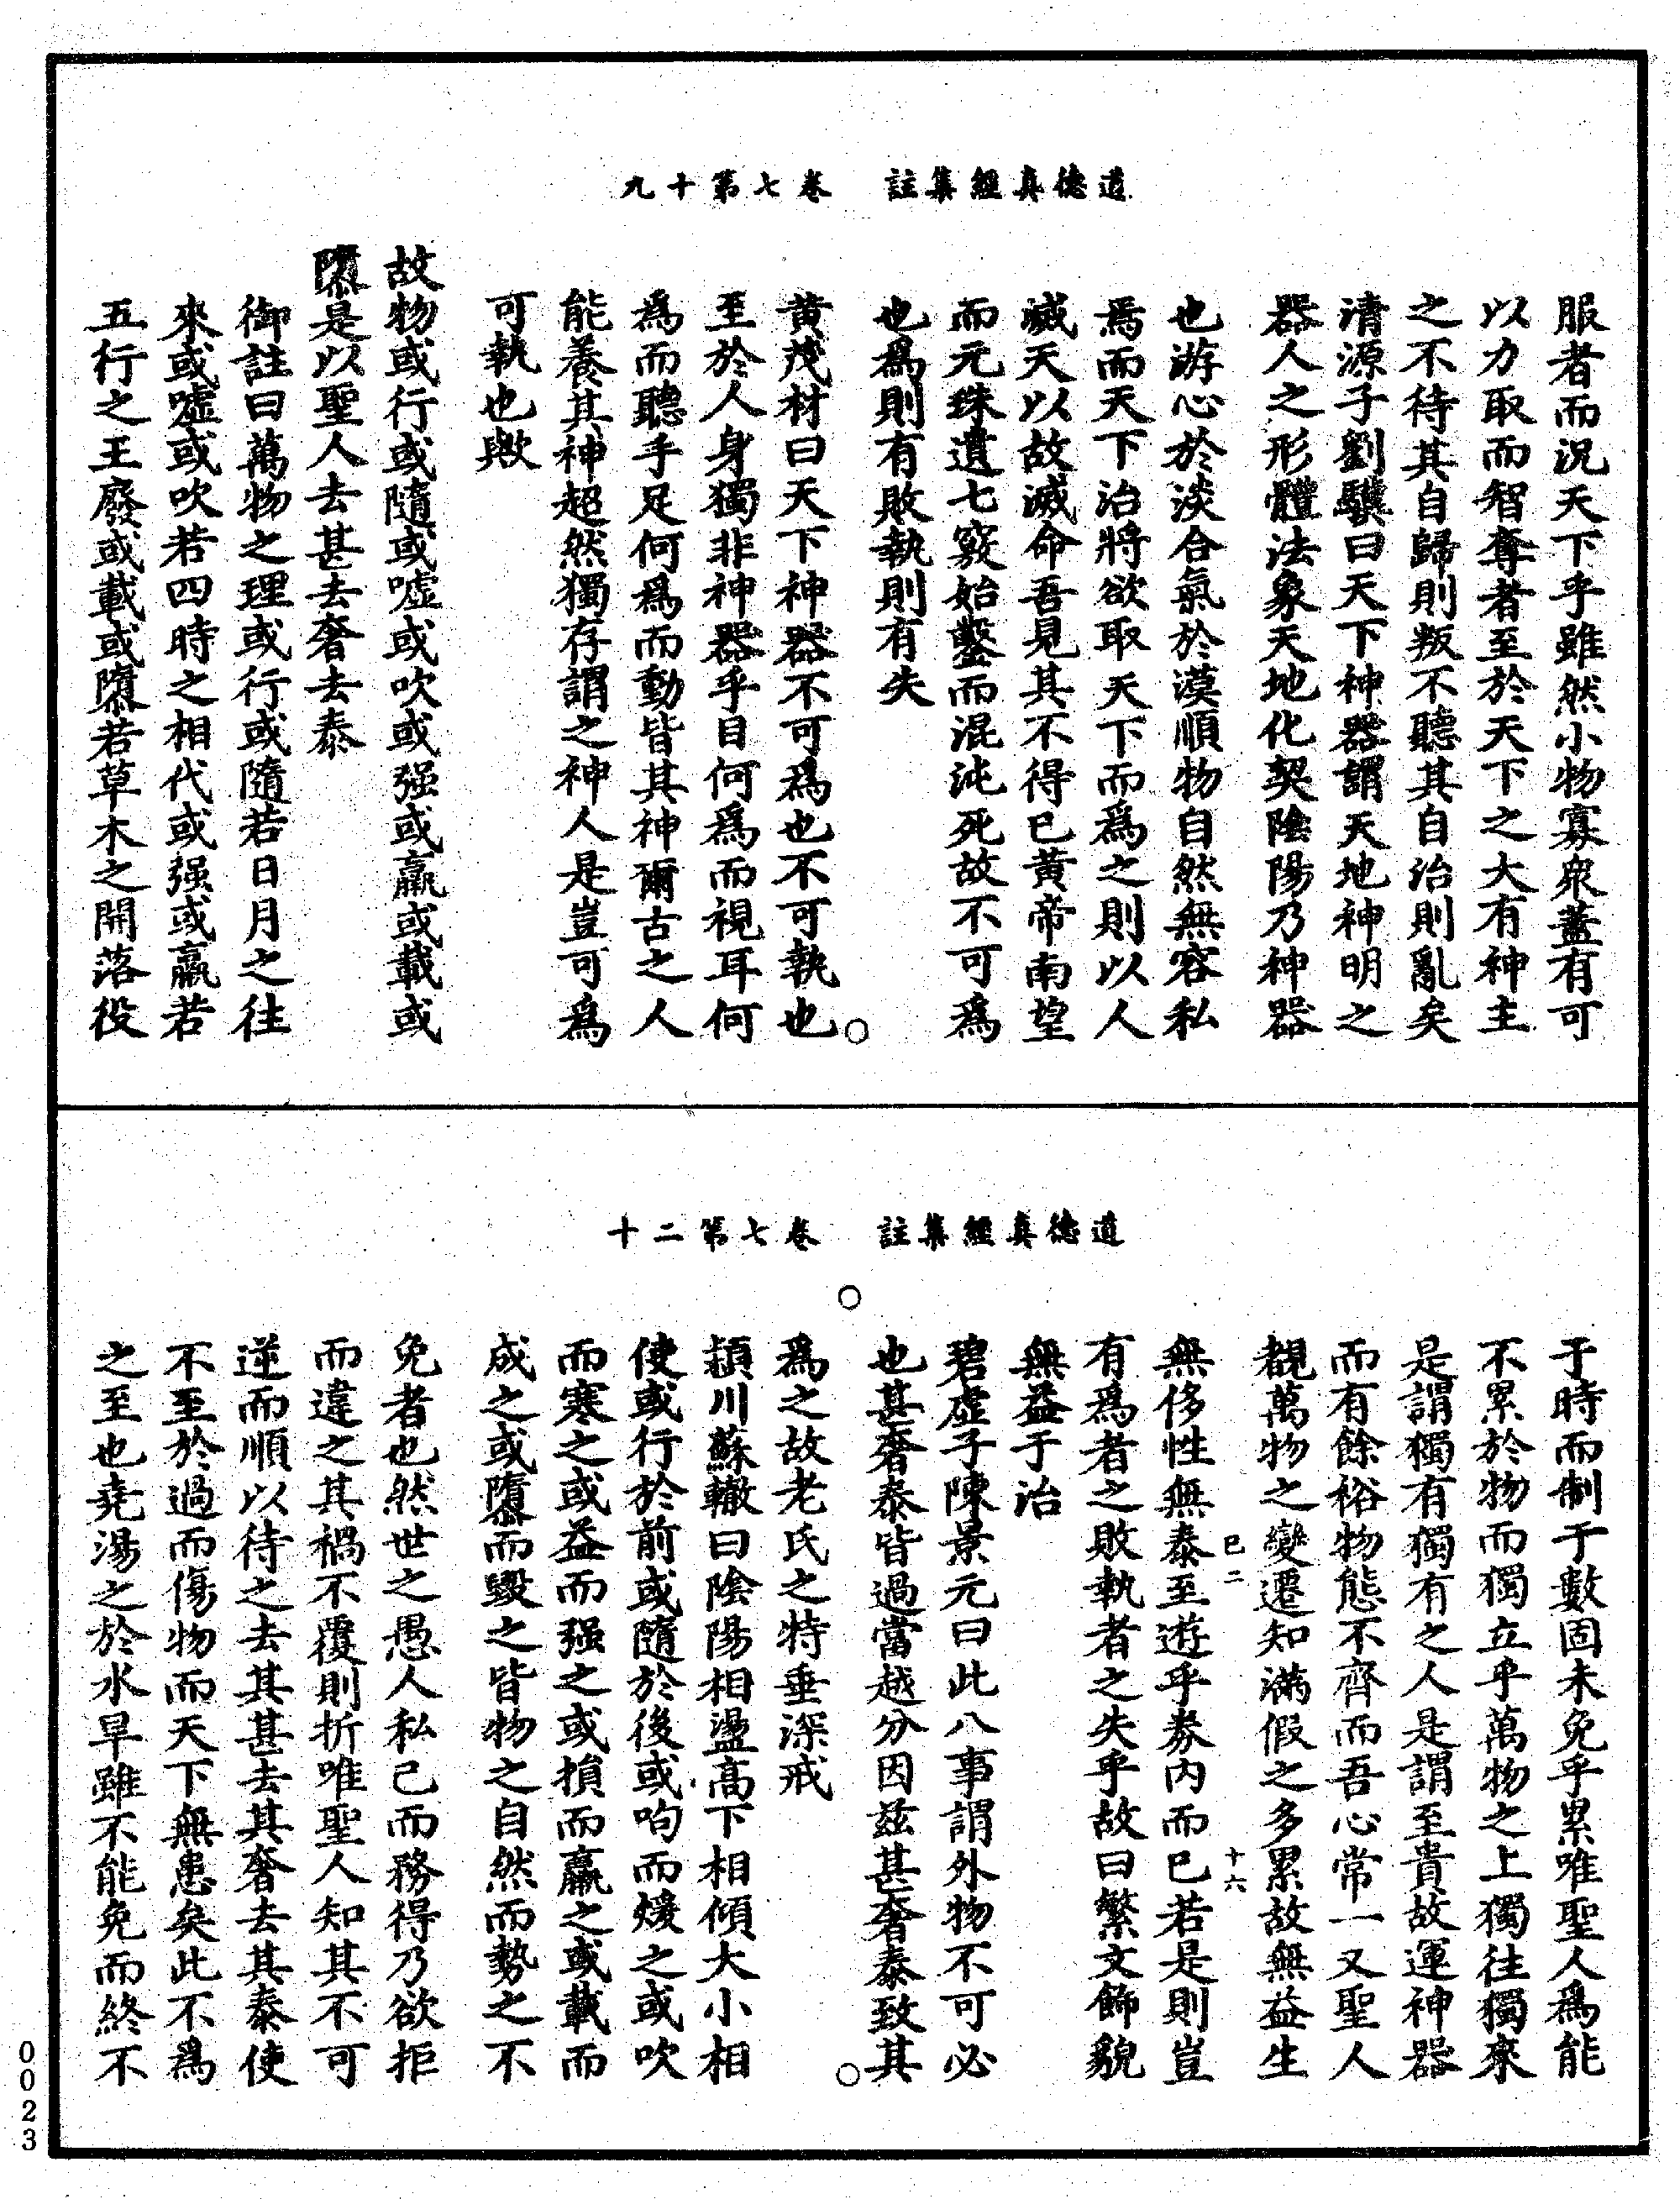 道德真經集註　卷七第十九
服者而況天下乎雖然小物寡衆蓋有可
以力取而智奪者至於天下之大有神主
之不待其自歸則叛不聽其自治則亂矣
清源子劉驥曰天下神器謂天地神明之
器人之形體法象天地化契陰陽乃神器
也游心於淡合氣於漠順物自然無容私
焉而天下治將欲取天下而爲之則以人
滅天以故滅命吾見其不得已黃帝南望
而元珠遺七竅始鑿而混沌死故不可爲
也爲則有敗執則有失
黃茂材曰天下神器不可爲也不可執也
至於人身獨非神器乎目何爲而視耳何
爲而聽手足何爲而動皆其神爾古之人
能養其神超然獨存謂之神人是豈可爲
可執也歟
故物或行或隨或噓或吹或强或羸或載或
隳是以聖人去甚去奢去泰
御註曰萬物之理或行或隨若日月之往
來或噓或吹若四時之相代或强或羸若
五行之王廢或載或隳若草木之開落役
道德真經集註　卷七第二十
于時而制于數固未免乎累唯聖人爲能
不累於物而獨立乎萬物之上獨往獨來
是謂獨有獨有之人是謂至貴故運神器
而有餘裕物態不齊而吾心常一又聖人
覩萬物之變遷知滿假之多累故無益生
已二　十六
無侈性無泰至遊乎券內而已若是則豈
有爲者之敗執者之失乎故曰繁文飾貌
無益于治
碧虛子陳景元曰此八事謂外物不可必
也甚奢泰皆過當越分因茲甚奢泰致其
爲之故老氏之特垂深戒
潁川蘇轍曰陰陽相盪高下相傾大小相
使或行於前或隨於後或呴而煖之或吹
而寒之或益而强之或損而羸之或載而
成之或隳而毀之皆物之自然而勢之不
免者也然世之愚人私己而務得乃欲拒
而違之其禍不覆則折唯聖人知其不可
逆而順以待之去其甚去其奢去其泰使
不至於過而傷物而天下無患矣此不爲
之至也堯湯之於水旱雖不能免而終不
0023